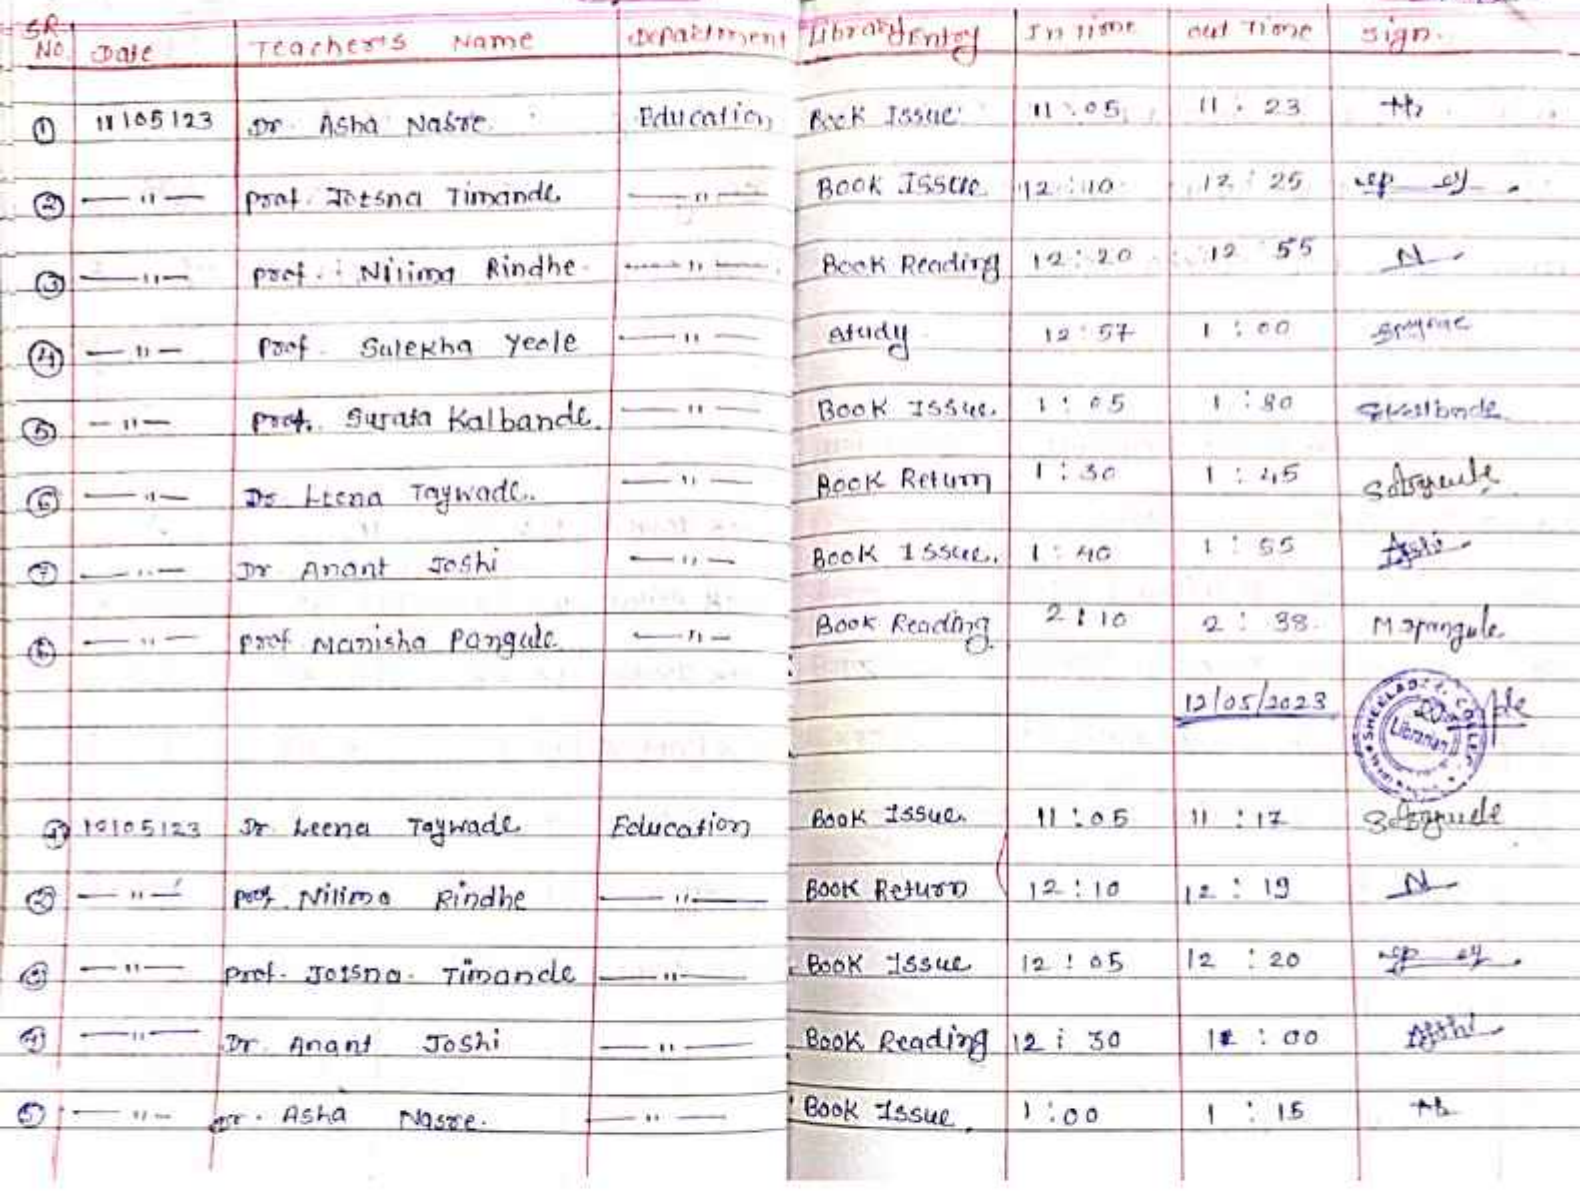 SR. No. Date Teacher's Name Department Library Entry In time out Time Sign.
① 11/05/23 Dr. Asha Nasre. Education Book Issue 11:05 11:23
② —"— Prof. Jotsna Timande —"— Book Issue 12:10 12:25
③ —"— Prof. Nilima Rindhe —"— Book Reading 12:20 12 55 N
④ —"— Prof. Sulekha Yeole —"— Study 12:57 1:00
⑤ —"— Prof. Surata Kalbande. —"— Book Issue. 1:05 1:30
⑥ —"— Dr Leena Taywade. —"— Book Return 1:30 1:45
⑦ —"— Dr Anant Joshi —"— Book Issue. 1:40 1:55
⑧ —"— Prof Manisha Pangule. —"— Book Reading 2:10 2:38 Mspangule
12/05/2023
Librarian
① Dr. Leena Taywade Education Book Issue. 11:05 11:17
② —"— Prof. Nilima Rindhe —"— Book Return 12:10 12:19 N
③ —"— Prof. Jotsna. Timande —"— Book Issue 12:05 12:20
④ —"— Dr. Anant Joshi —"— Book Reading 12:30 :00
⑤ —"— Dr. Asha Nasre. —"— Book Issue. 1:00 1:15